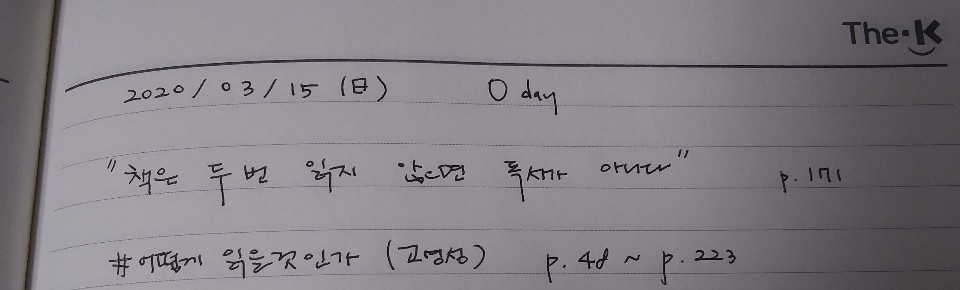 The·K
2020/03/15 (日) 0 day
"책은 두 번 읽지 않으면 독서가 아니다" p.171
#어떻게 읽을것인가 (고영성) p.48 ~ p.223